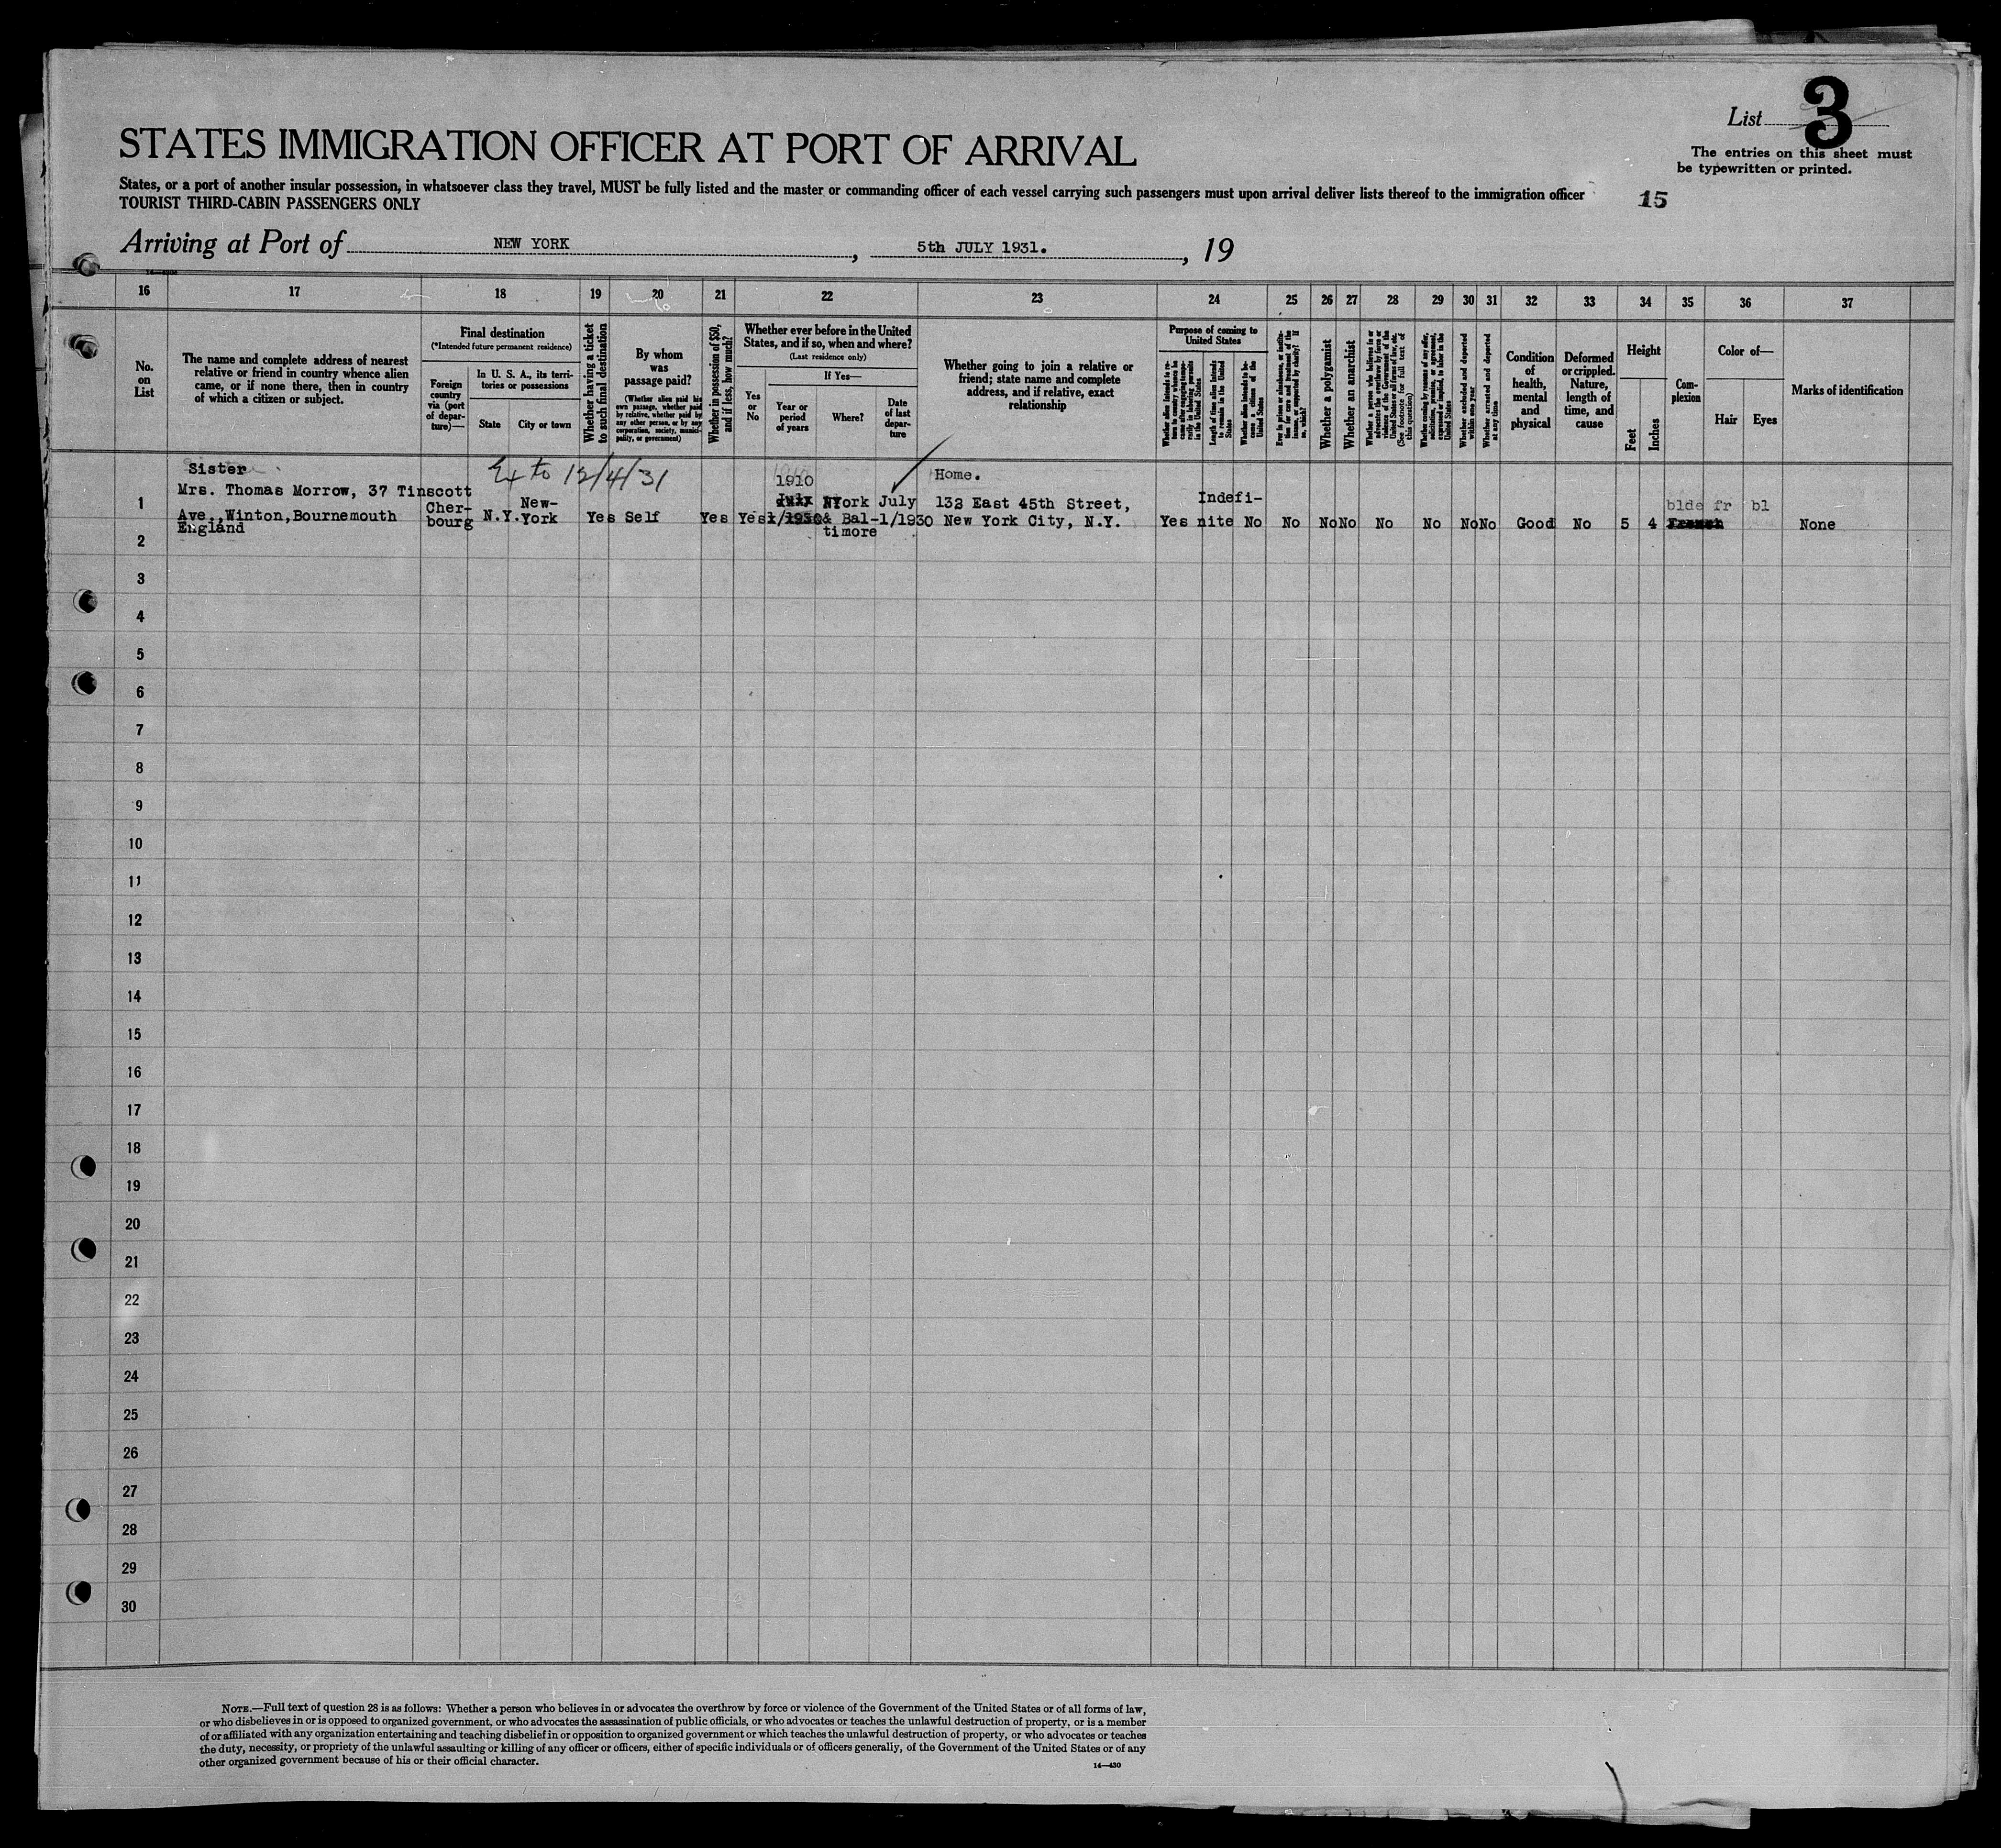 List 3
STATES IMMIGRATION OFFICER AT PORT OF ARRIVAL
The entries on this sheet must
be typewritten or printed.
States, or a port of another insular possession, in whatsoever class they travel, MUST be fully listed and the master or commanding officer of each vessel carrying such passengers must upon arrival deliver lists thereof to the immigration officer
TOURIST THIRD-CABIN PASSENGERS ONLY
15
Arriving at Port of NEW YORK, 5th JULY 1931., 19
16 17 18 19 20 21 22 23 24 25 26 27 28 29 30 31 32 33 34 35 36 37
No.
on
List
The name and complete address of nearest
relative or friend in country whence alien
came, or if none there, then in country
of which a citizen or subject.
Final destination
(*Intended future permanent residence)
Foreign
country
via (port
of depar-
ture)—
In U. S. A., its terri-
tories or possessions
State City or town
Whether having a ticket
to such final destination
By whom
was
passage paid?
(Whether alien paid his
own passage, whether paid
by relative, whether paid by
any other person, or by any
corporation, society, munici-
pality, or government)
Whether in possession of $50,
and if less, how much?
Whether ever before in the United
States, and if so, when and where?
(Last residence only)
Yes
or
No
If Yes—
Year or
period
of years
Where?
Date
of last
depar-
ture
Whether going to join a relative or
friend; state name and complete
address, and if relative, exact
relationship
Purpose of coming to
United States
Length of time alien intends
to remain in the United
States
Whether alien intends to be-
come a citizen of the
United States
Whether a polygamist
Whether an anarchist
Whether excluded and deported
within one year
Whether arrested and deported
at any time
Condition
of
health,
mental
and
physical
Deformed
or crippled.
Nature,
length of
time, and
cause
Height
Feet
Inches
Com-
plexion
Color of—
Hair Eyes
Marks of identification
Sister
Ex to 12/4/31
1910
Home.
1 Mrs. Thomas Morrow, 37 Tinscott
Ave., Winton, Bournemouth
England
Cher-
bourg
N.Y.
New-
York
Yes Self Yes Yes
1/1930
NYork July
& Bal-1/1930
timore
132 East 45th Street,
New York City, N.Y.
Yes
Indefi-
nite
No No No No No No No No Good No 5 4
blde fr bl
None
2
3
4
5
6
7
8
9
10
11
12
13
14
15
16
17
18
19
20
21
22
23
24
25
26
27
28
29
30
NOTE.—Full text of question 28 is as follows: Whether a person who believes in or advocates the overthrow by force or violence of the Government of the United States or of all forms of law,
or who disbelieves in or is opposed to organized government, or who advocates the assassination of public officials, or who advocates or teaches the unlawful destruction of property, or is a member
of or affiliated with any organization entertaining and teaching disbelief in or opposition to organized government or which teaches the unlawful destruction of property, or who advocates or teaches
the duty, necessity, or propriety of the unlawful assaulting or killing of any officer or officers, either of specific individuals or of officers generally, of the Government of the United States or of any
other organized government because of his or their official character.
14—430